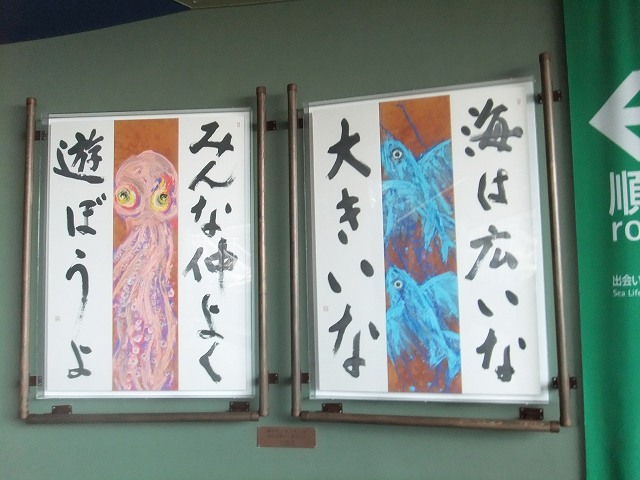 海は広いな
大きいな
みんな仲よく
遊ぼうよ
順
ro
出会い
Sea Life